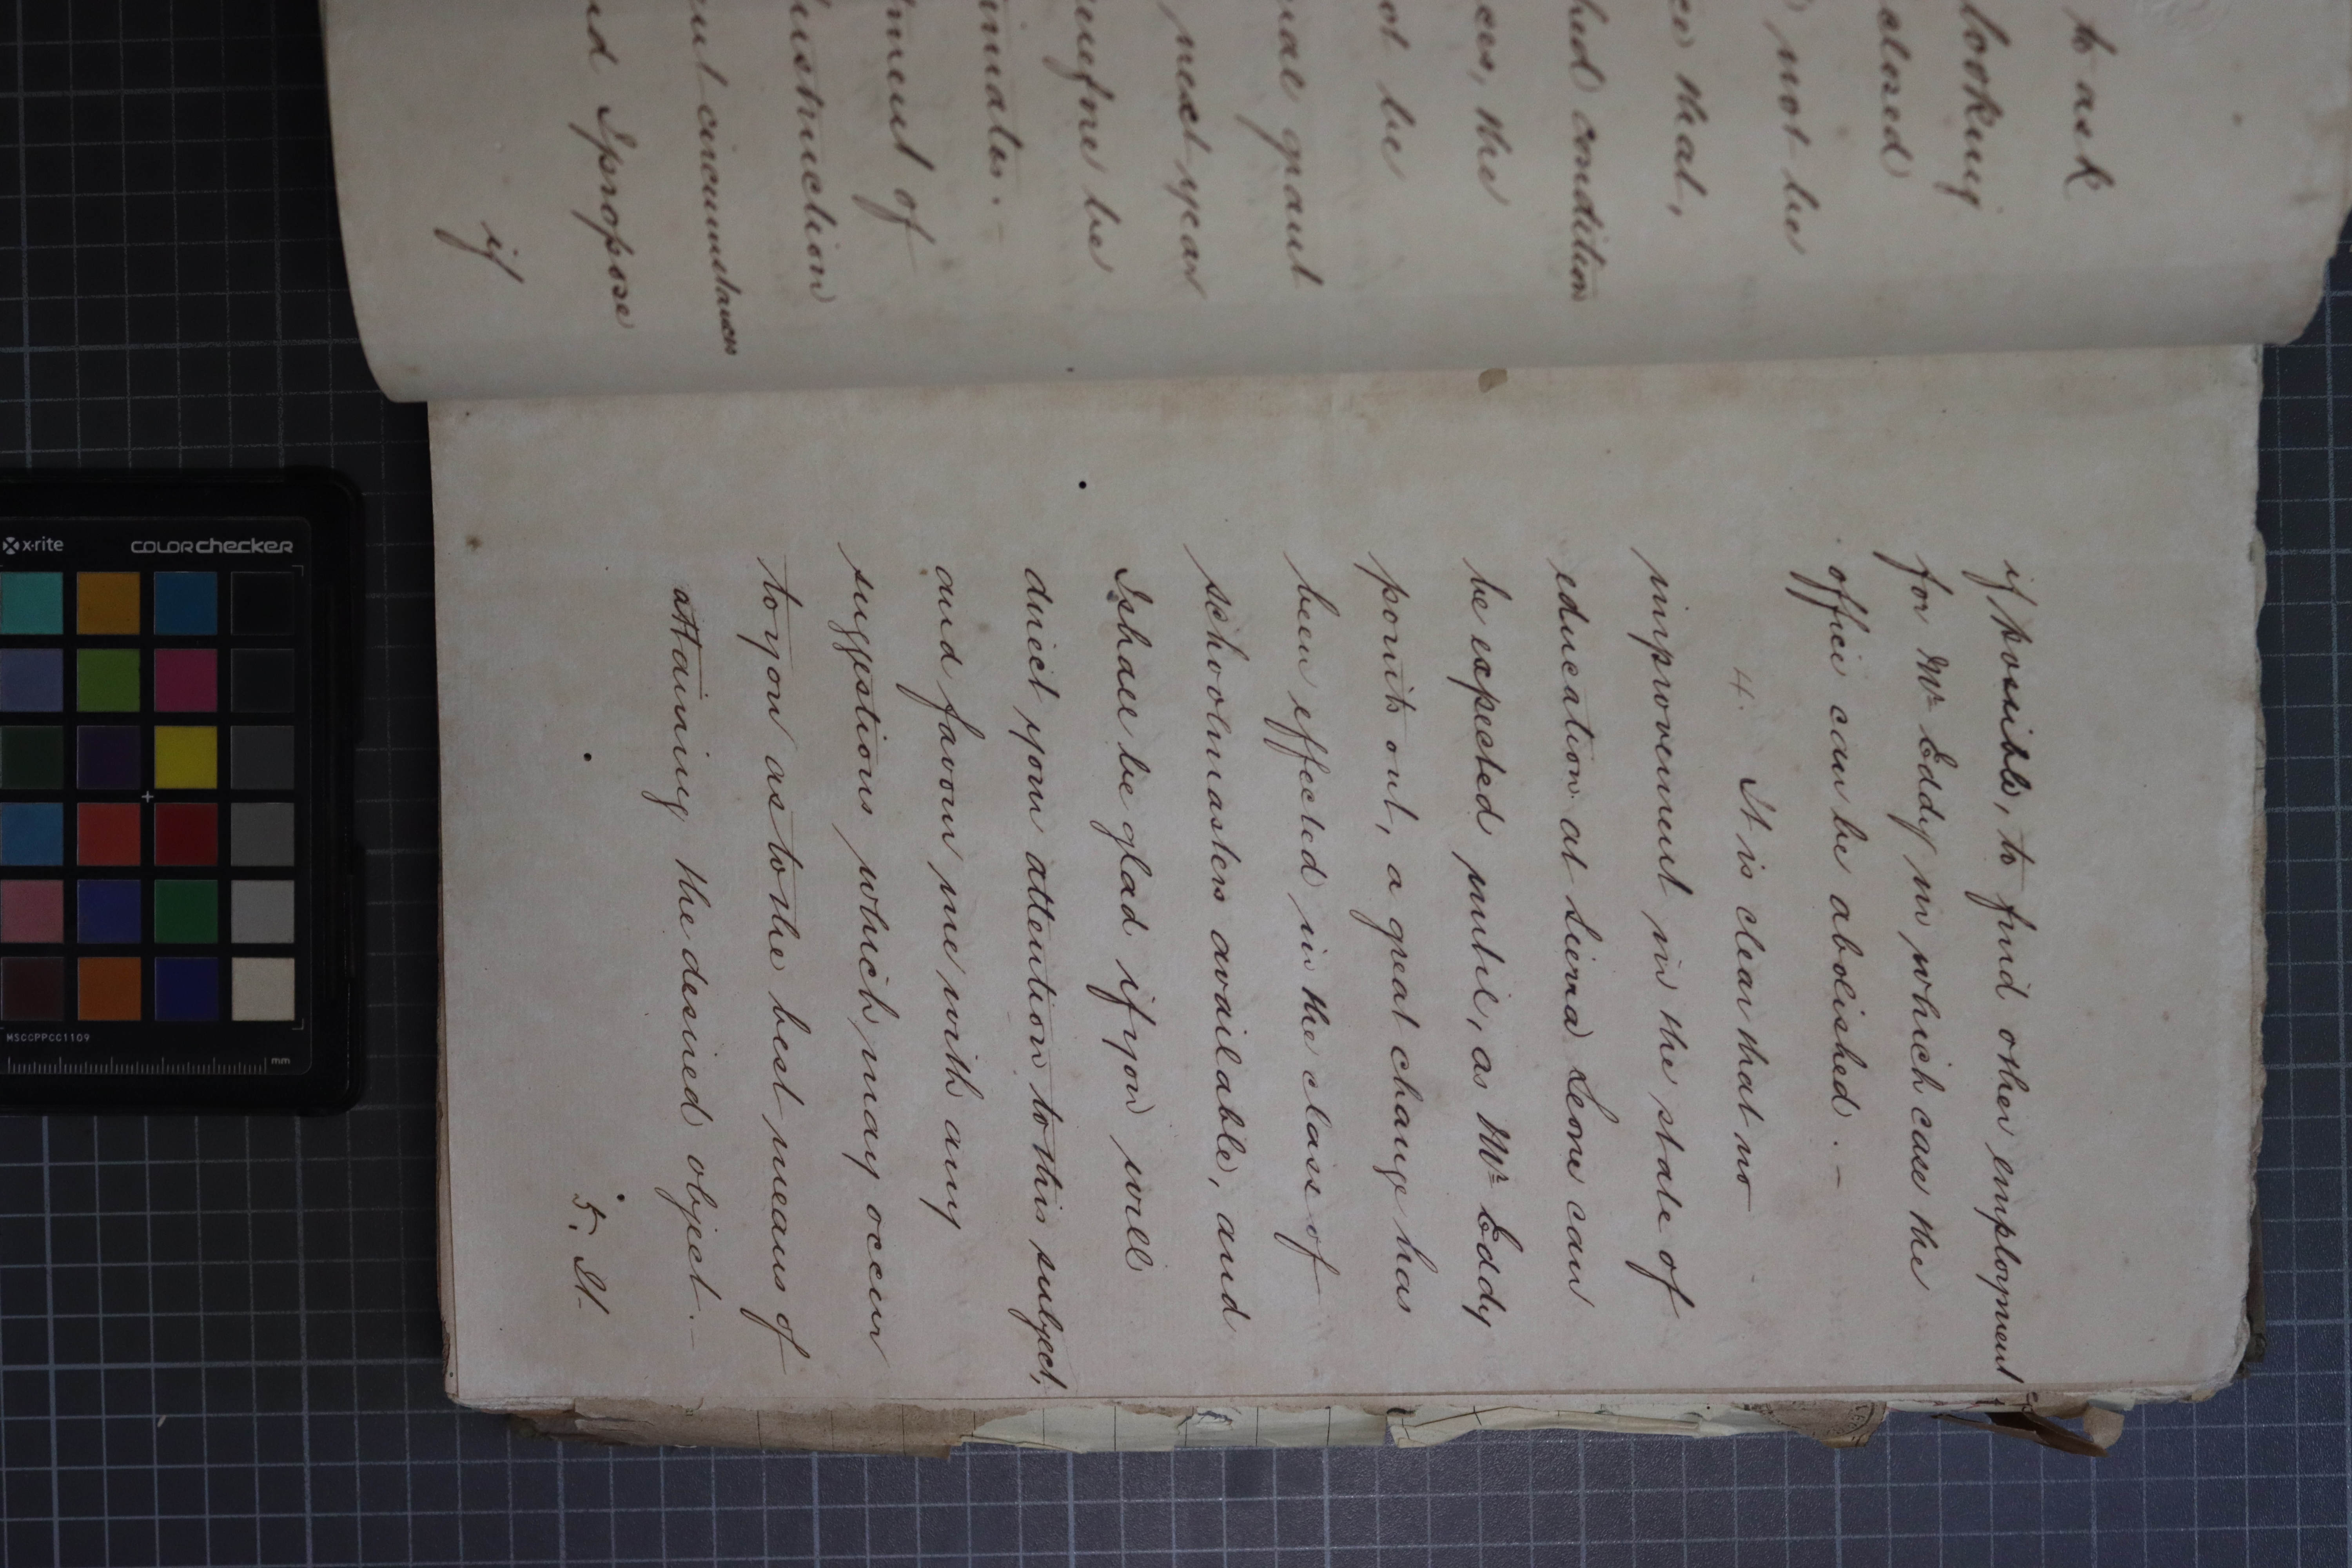 to ask
looking
closed
not be
ce that,
hed condition
ces, the
ot be
ual grant
next year
herefore be
timates. -
tment of
instruction
ent circumstances
nd I propose
if
if possible, to find other employment
for Mr. Eddy in which case the
office can be abolished. -
4. It is clear that no
improvement in the state of
education at Sierra Leone can
be expected until, as Mr. Eddy
points out, a great change has
been effected in the class of
schoolmasters available, and
I shall be glad if you will
direct your attention to this subject,
and favour me with any
suggestions which may occur
to you as to the best means of
attaining the desired object. -
5. It
x-rite
colorchecker
MSCCPPCC1109
mm